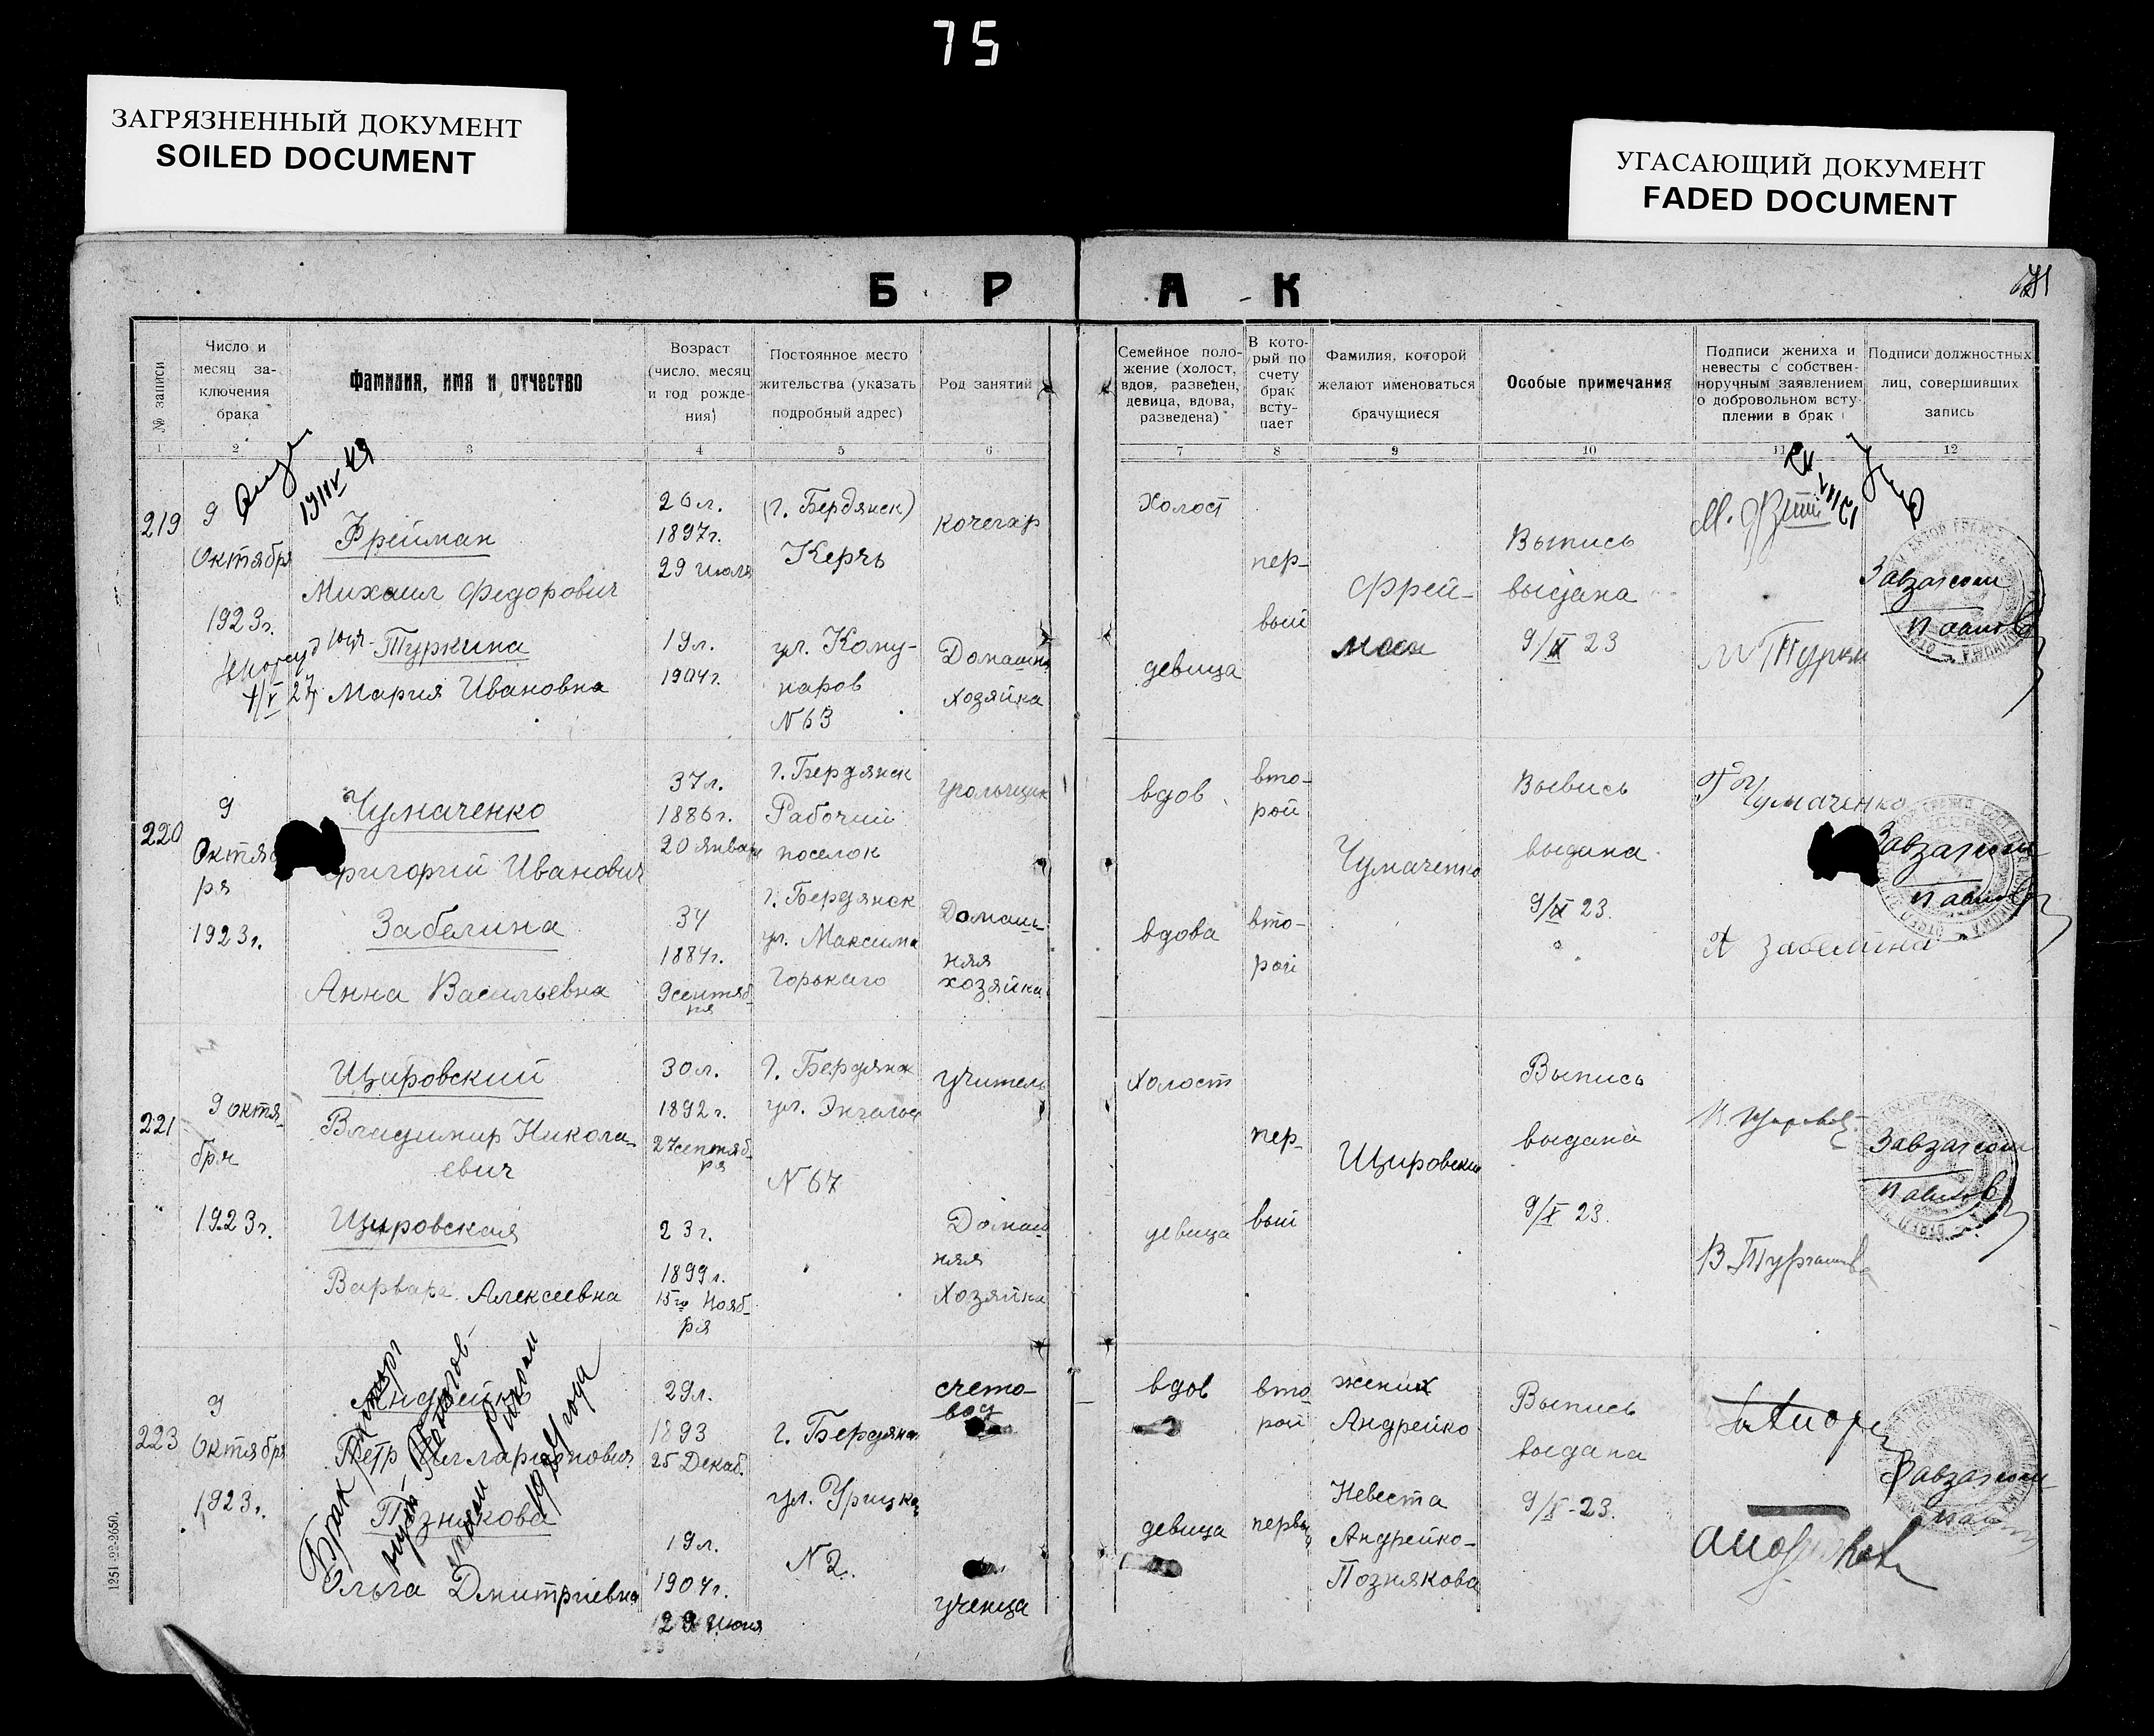 75
ЗАГРЯЗНЕННЫЙ ДОКУМЕНТ
SOILED DOCUMENT
УГАСАЮЩИЙ ДОКУМЕНТ
FADED DOCUMENT
Б Р А К
№ записи
Число и
месяц за-
ключения
брака
Фамилия, имя и отчество
Возраст
(число, месяц
и год рожде-
ния)
Постоянное место
жительства (указать
подробный адрес)
Род занятий
Семейное поло-
жение (холост,
вдов, разведен,
девица, вдова,
разведена)
В кото-
рый по
счету
брак
всту-
пает
Фамилия, которой
желают именоваться
брачущиеся
Особые примечания
Подписи жениха и
невесты с собствен-
норучным заявлением
о добровольном всту-
плении в брак
Подписи должностных
лиц, совершивших
запись
1 2 3 4 5 6 7 8 9 10 11 12
219
9
Октября
1923г.
Фрейман
Михаил Федорович
Туркина
Мария Ивановна
26 л.
1897г.
29 июля
19л.
1904г.
(г. Бердянск)
Керчь
ул. Кому-
наров
N 63
кочегар
Домашн
хозяйка
Холост
девица
пер-
вый
Фрей-
ман
Выпись
выдана
9/X 23
Завзагсом
220
9
Октяб
ря
1923г.
Чумаченко
ригорий Иванович
Забелина
Анна Васильевна
37л.
1886г.
20 января
34
1884г.
9 сентяб-
ря
г. Бердянск
Рабочий
поселок
г. Бердянск
ул. Максима
Горькаго
угольщик
Домаш-
няя
хозяйка
вдов
вдова
вто-
рой
вто-
рой
Чумаченко
выдана
9/X 23.
Чумаченко
А Забелина
Завзагсом
221
9 октя-
бря
1923г.
Щировский
Владимир Никола-
евич
Щировская
Варвара Алексеевна
30л.
1892г.
27 сентяб-
ря
23г.
1899г.
15го Нояб-
ря
г. Бердянск
ул. Энгельса
N 67
учитель
Домаш-
няя
Хозяйка
холост
девица
пер-
вый
Щировский
Выпись
выдана
9/X 23.
Завзагсом
223
9
Октября
1923г.
Андрейко
Петр Илларионович
Познякова
Ольга Дмитриевна
29л.
1893
25 Декаб.
19л.
1904г.
29 Июня
г. Бердянск
ул. Урицка
N 2.
счето-
вод
ученица
вдов
девица
вто
рой
первы
жених
Андрейко
Невеста
Андрейко-
Познякова
Выпись
выдана
9/X-23.
Завзагсом
Брак
1924 года
1251-22-2650.